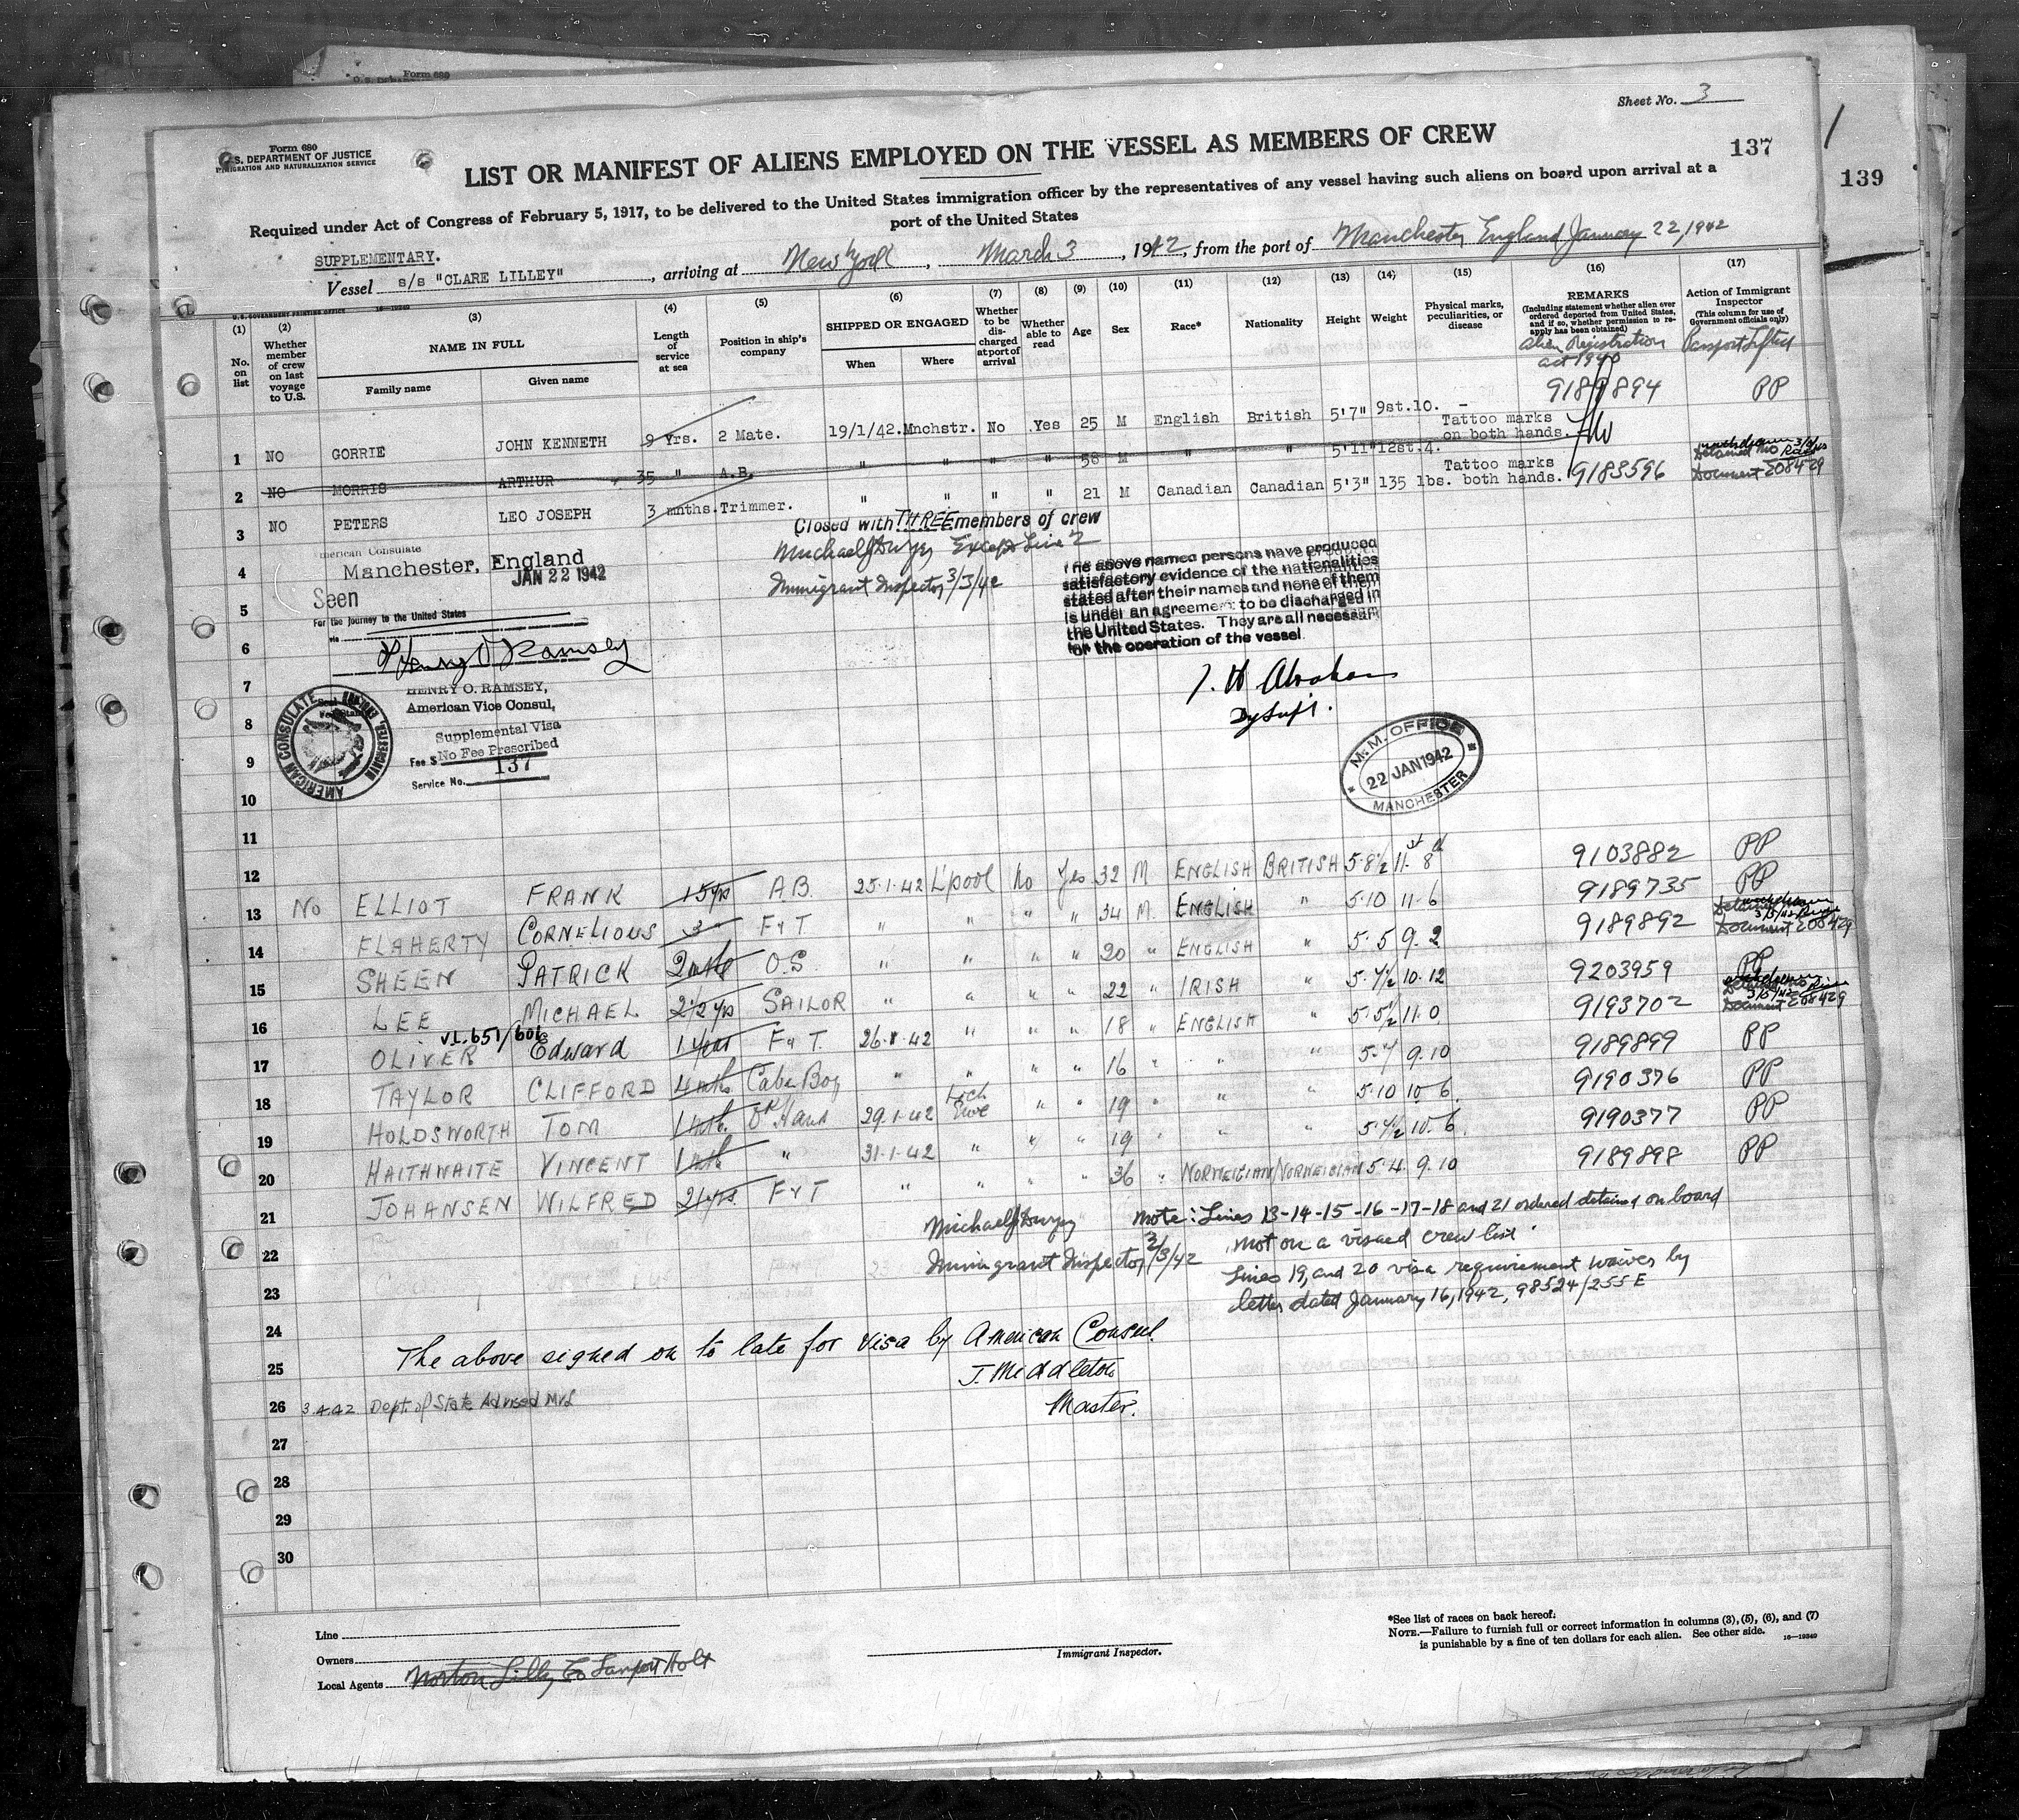 Form 680
U.S. DEPARTMENT OF JUSTICE
IMMIGRATION AND NATURALIZATION SERVICE
Sheet No. 3
LIST OR MANIFEST OF ALIENS EMPLOYED ON THE VESSEL AS MEMBERS OF CREW
137
139
Required under Act of Congress of February 5, 1917, to be delivered to the United States immigration officer by the representatives of any vessel having such aliens on board upon arrival at a
port of the United States
SUPPLEMENTARY.
Vessel s/s "CLARE LILLEY", arriving at New York, March 3, 1942, from the port of Manchester England January 22, 1942
U.S. GOVERNMENT PRINTING OFFICE 16-19349
(1) No. on list
(2) Whether member of crew on last voyage to U.S.
(3) NAME IN FULL
Family name
Given name
(4) Length of service at sea
(5) Position in ship's company
(6) SHIPPED OR ENGAGED
When
Where
(7) Whether to be discharged at port of arrival
(8) Whether able to read
(9) Age
(10) Sex
(11) Race*
(12) Nationality
(13) Height
(14) Weight
(15) Physical marks, peculiarities, or disease
(16) REMARKS
(Including statement whether alien ever ordered deported from United States, and if so, whether permission to reapply has been obtained)
Alien Registration act 1940
(17) Action of Immigrant Inspector
(This column for use of Government officials only)
Passport Lifted
1 NO GORRIE JOHN KENNETH 9 Yrs. 2 Mate. 19/1/42. Mnchstr. No Yes 25 M English British 5'7" 9st.10. - 9189894 PP
2 NO MORRIS ARTHUR 35 " A.B. " " " " 58 M " " 5'11" 12st.4. Tattoo marks on both hands.
3 NO PETERS LEO JOSEPH 3 mnths. Trimmer. " " " " 21 M Canadian Canadian 5'3" 135 lbs. Tattoo marks both hands. 9183596 Document 208429
Closed with THREE members of crew
Michael J Dwyer Except Line 2
Immigrant Inspector 3/3/42
4
American Consulate
Manchester, England
JAN 22 1942
5
Seen
For the journey to the United States
via
6
Henry O Ramsey
7
HENRY O. RAMSEY,
American Vice Consul,
8
Supplemental Visa
9
Fee $ No Fee Prescribed
Service No. 137
AMERICAN CONSULATE MANCHESTER, ENGLAND
The above named persons have produced
satisfactory evidence of the nationalities
stated after their names and none of them
is under an agreement to be discharged in
the United States. They are all necessary
for the operation of the vessel
J. H Abraham
Dy Supt.
M.M. OFFICE
22 JAN 1942
MANCHESTER
10
11
12
13 No ELLIOT FRANK 15 yrs A.B. 25.1.42 L'pool No Yes 32 M ENGLISH BRITISH 5.8½ 11.8 9103882 PP
14 FLAHERTY CORNELIOUS 3 " F&T " " " " 34 M. ENGLISH " 5.10 11.6 9189735 PP
15 SHEEN PATRICK 2 mths O.S. " " " " 20 " ENGLISH " 5.5 9.2 9189892 Document 208429
16 LEE MICHAEL 2½ yrs SAILOR " " " " 22 " IRISH " 5.7½ 10.12 9203959 PP
VI.651/606
17 OLIVER Edward 1 year F&T. 26.1.42 " " " 18 " ENGLISH " 5.5½ 11.0 9193702 Document 208429
18 TAYLOR CLIFFORD 4 mths Cabin Boy " " " " 16 " " " 5.7 9.10 9189899 PP
19 HOLDSWORTH TOM 1 mth. Dk Hand 29.1.42 Loch Ewe " " 19 " " " 5.10 10.6. 9190376 PP
20 HAITHWAITE VINCENT 1 mth " 31.1.42 " " " 19 " " " 5.7½ 10.6. 9190377 PP
21 JOHANSEN WILFRED 21 yrs. F&T " " " " 36 " NORWEIGIAN NORWEIGIAN 5.4. 9.10 9189898 PP
22
Michael J Dwyer
Immigrant Inspector 3/3/42
Note: Lines 13-14-15-16-17-18 and 21 ordered detained on board
not on a visaed crew list.
Lines 19, and 20 visa requirement waived by
letter dated January 16, 1942, 98524/255E
23
24
The above signed on to late for visa by American Consul.
25
J. Middleton
Master.
26 3.4.42 Dept. of State Advised
27
28
29
30
Line
Owners
Local Agents Norton Lilly Co Lamport Holt
Immigrant Inspector.
*See list of races on back hereof.
NOTE.—Failure to furnish full or correct information in columns (3), (5), (6), and (7)
is punishable by a fine of ten dollars for each alien. See other side. 16-19349